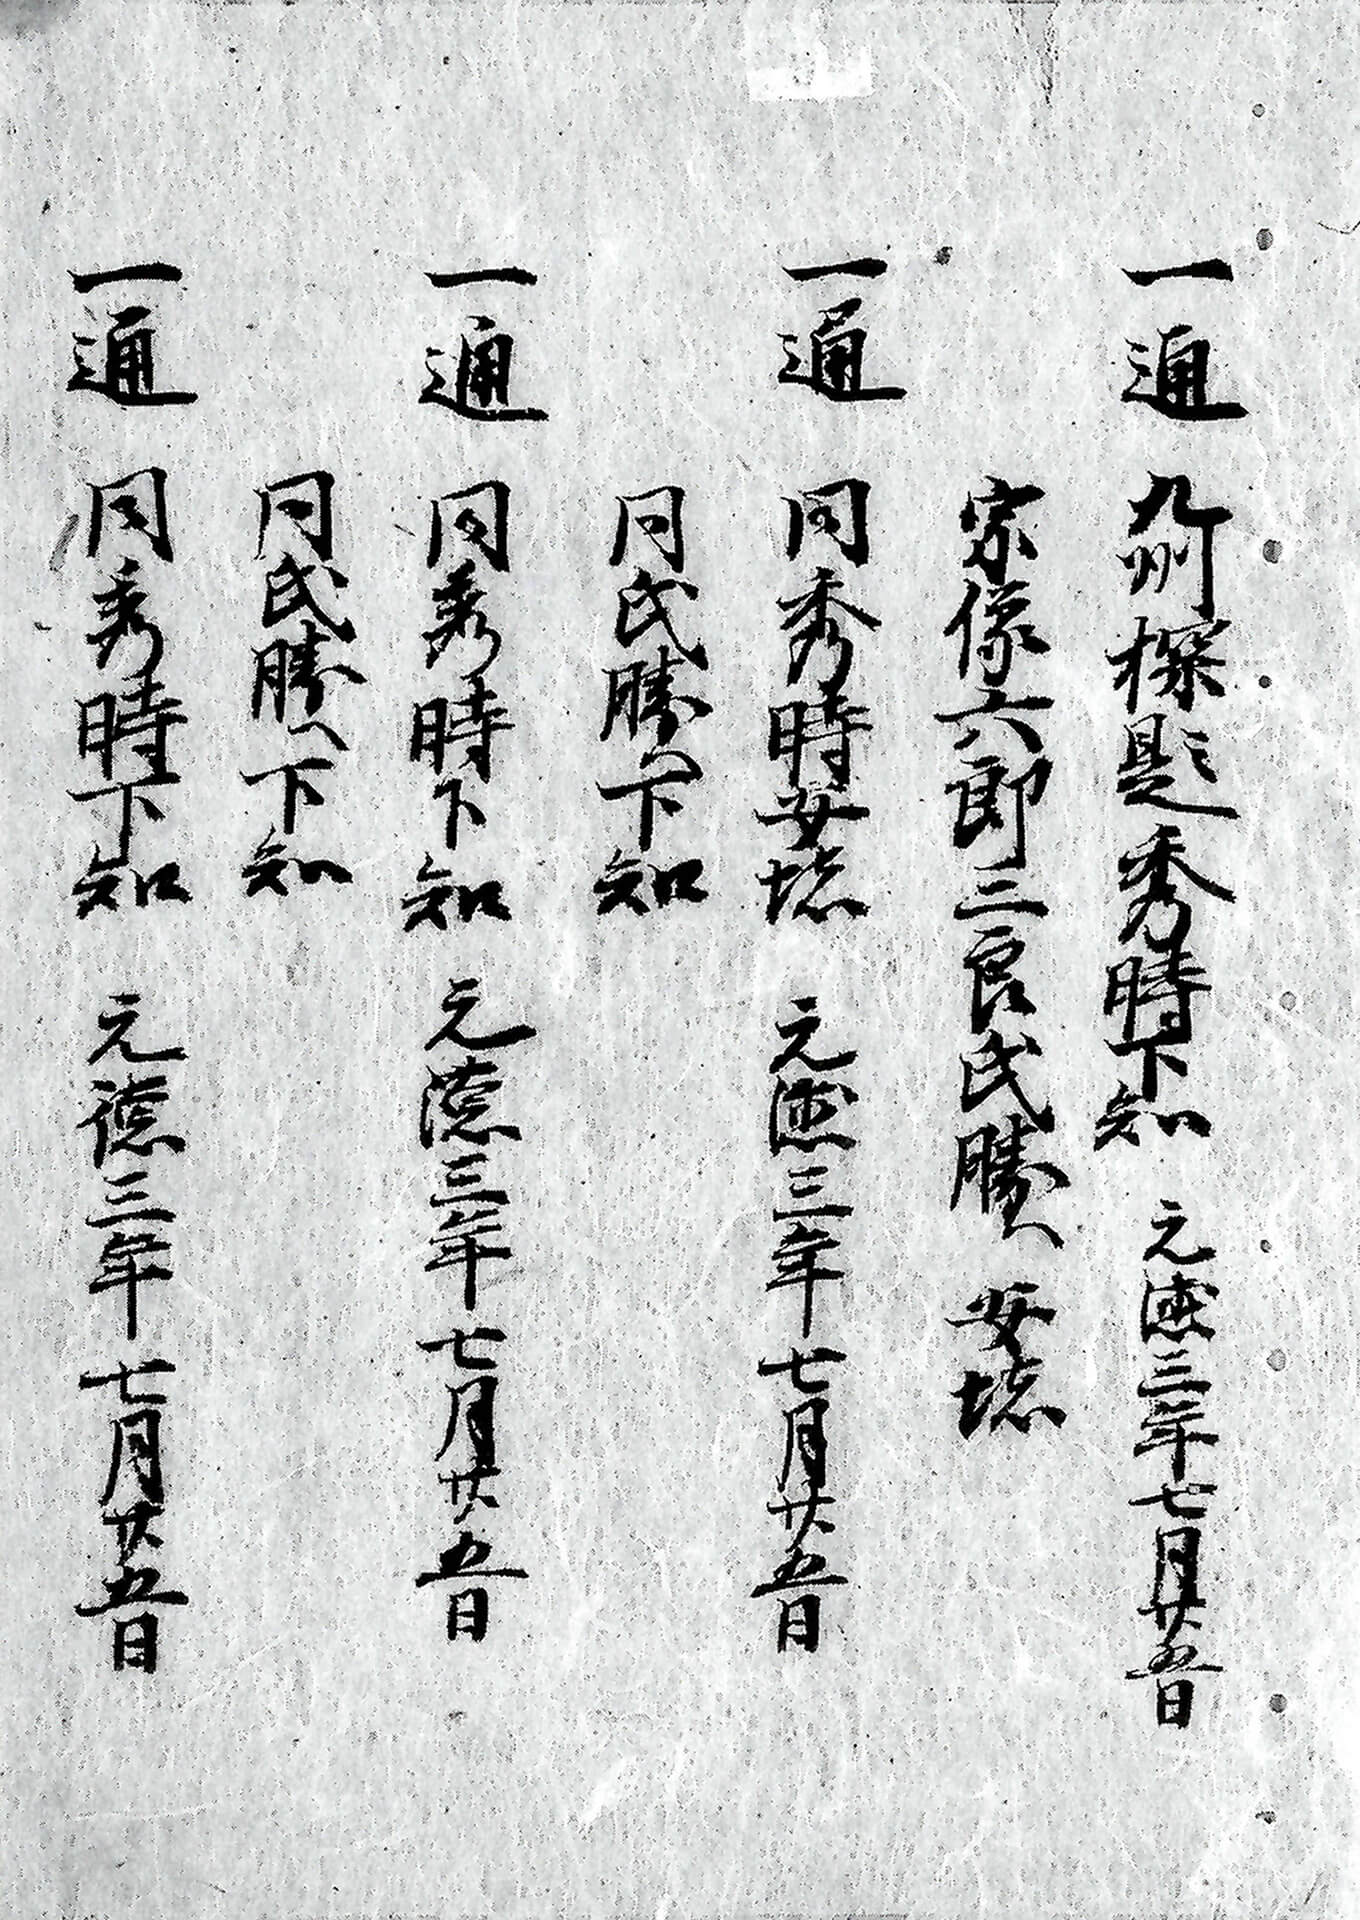 一通 九州探題秀時下知 元徳三年七月廿五日
宗像六郎三良氏勝へ 安堵
一通 同秀時安堵 元徳三年七月廿五日
同氏勝へ下知
一通 同秀時下知 元徳三年七月廿五日
同氏勝へ下知
一通 同秀時下知 元徳三年七月廿五日